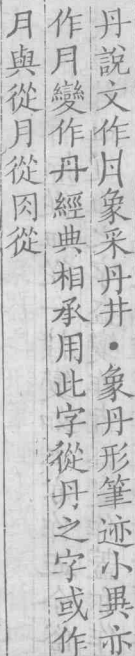 丹說文作月象采丹井・象丹形筆迹小異亦
作月變作丹經典相承用此字從丹之字或作
月與從月從肉從